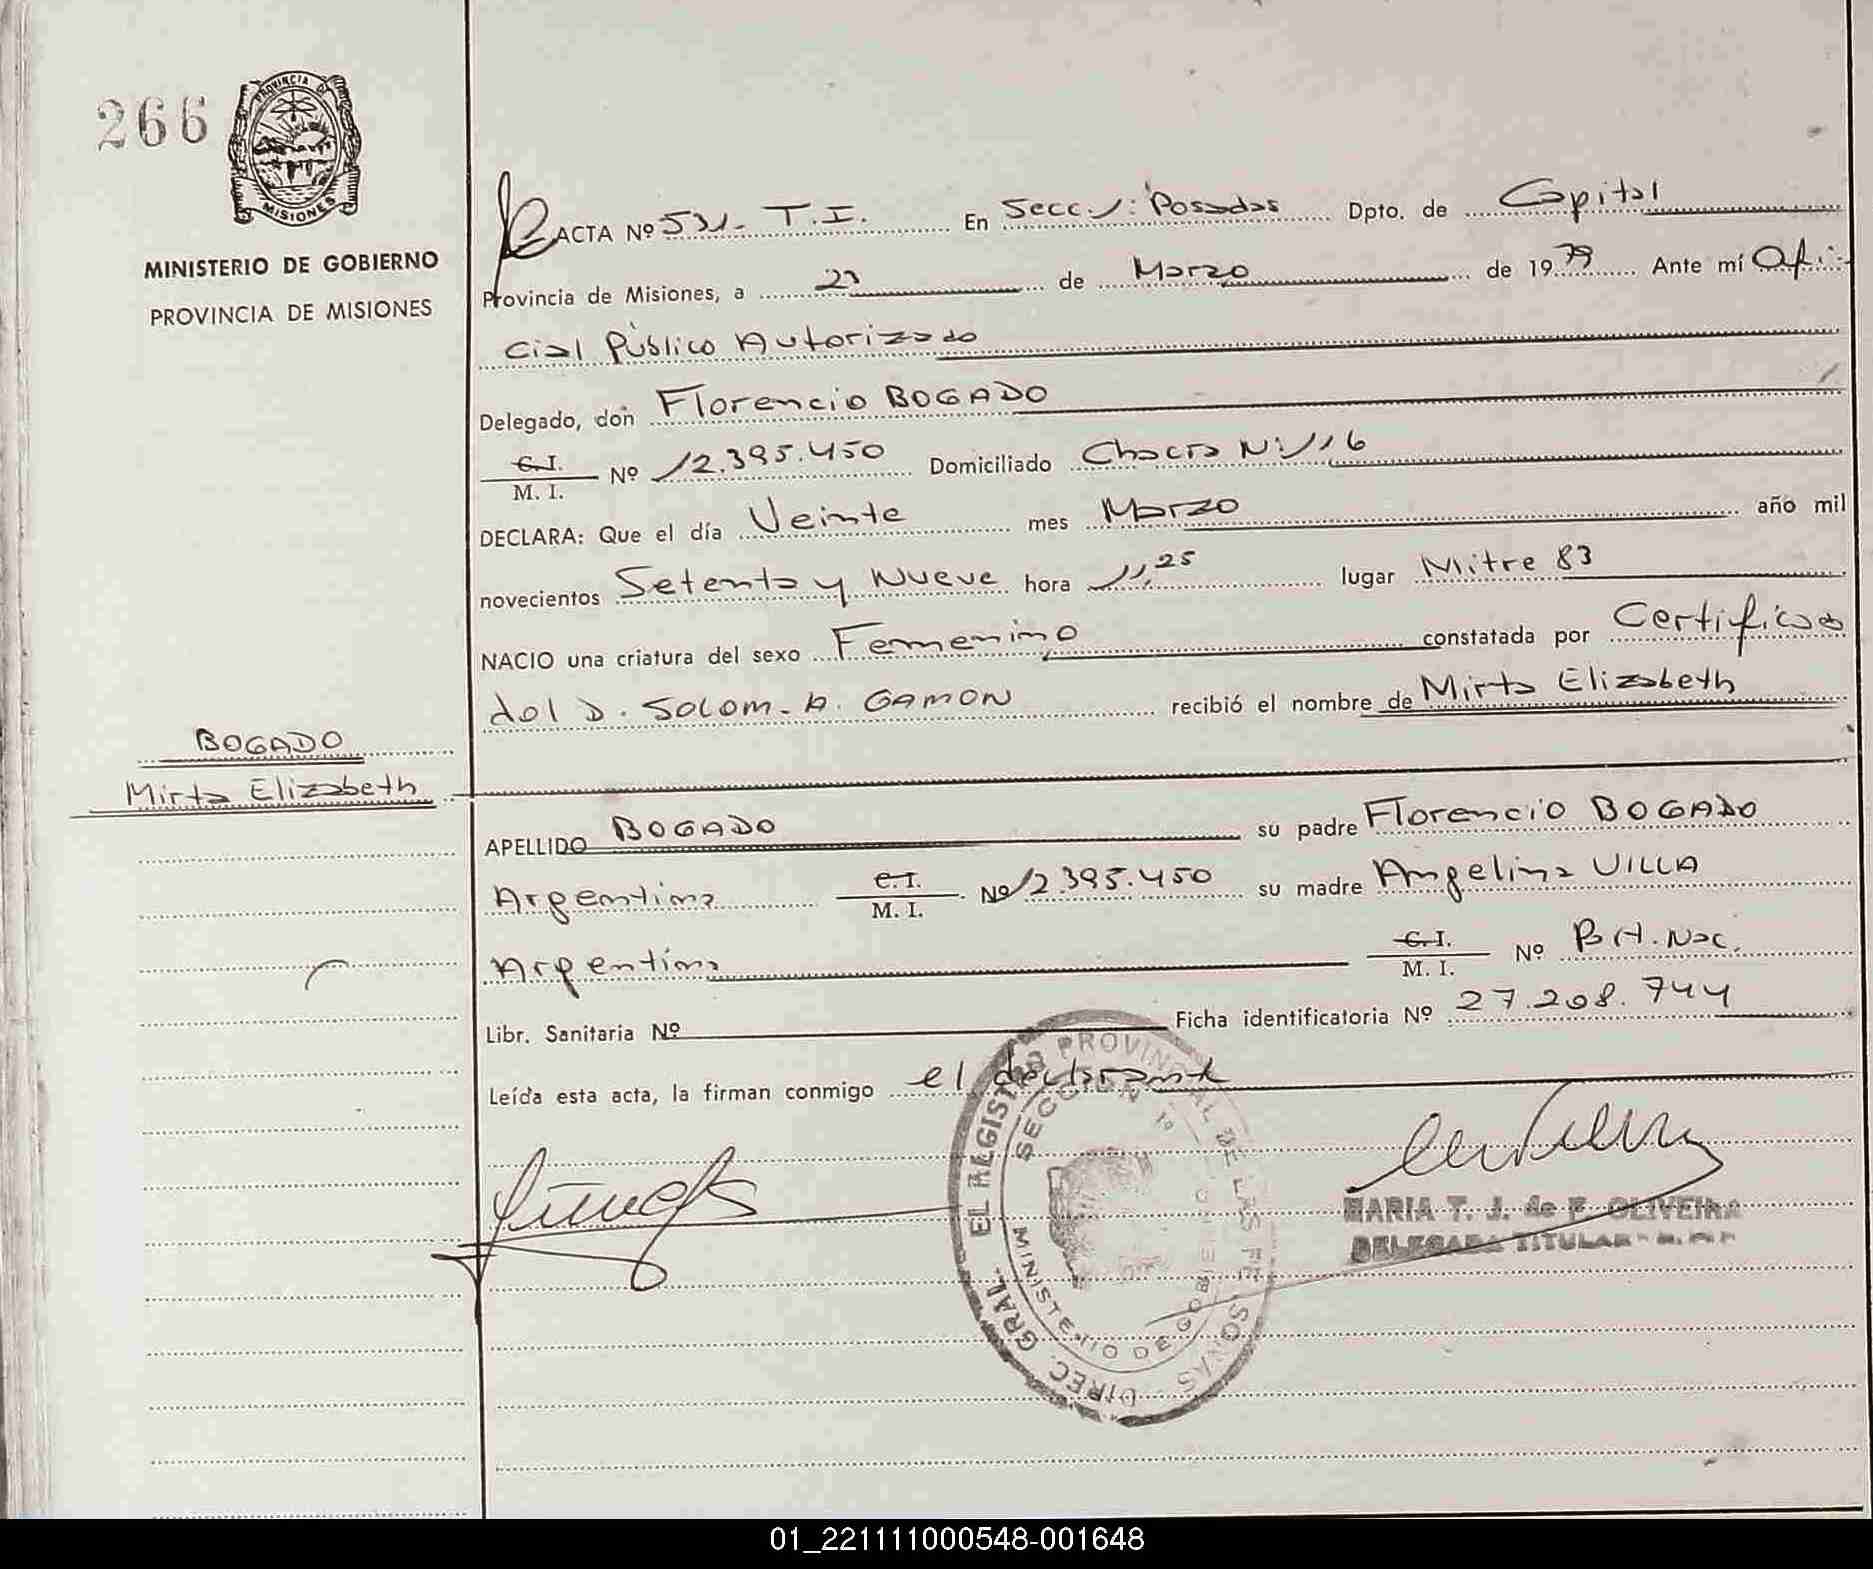 266
PROVINCIA DE
MISIONES
MINISTERIO DE GOBIERNO
PROVINCIA DE MISIONES
ACTA Nº 531- T.I. En Secc. 1: Posadas Dpto. de Capital
Provincia de Misiones, a 23 de Marzo de 1979 Ante mí Ofi-
cial Público Autorizado
Delegado, don Florencio BOGADO
C.I.
M. I. Nº 12.395.450 Domiciliado Chacra Nº 116
DECLARA: Que el día Veinte mes Marzo año mil
novecientos Setenta y Nueve hora 11,25 lugar Mitre 83
NACIO una criatura del sexo Femenino constatada por Certificado
del D. SOLOM. A. GAMON recibió el nombre de Mirta Elizabeth
BOGADO
Mirta Elizabeth
APELLIDO BOGADO su padre Florencio BOGADO
Argentina C.I.
M. I. Nº 12.395.450 su madre Angelina VILLA
Argentina C.I.
M. I. Nº Bol. Nac.
Libr. Sanitaria Nº Ficha identificatoria Nº 27.208.744
Leída esta acta, la firman conmigo el declarante
DIREC. GRAL. EL REGISTRO PROVINCIAL DE LAS PERSONAS
SECCION 1º
MINISTERIO DE GOBIERNO
MARIA T. J. de F. OLIVEIRA
DELEGADA TITULAR
01_221111000548-001648